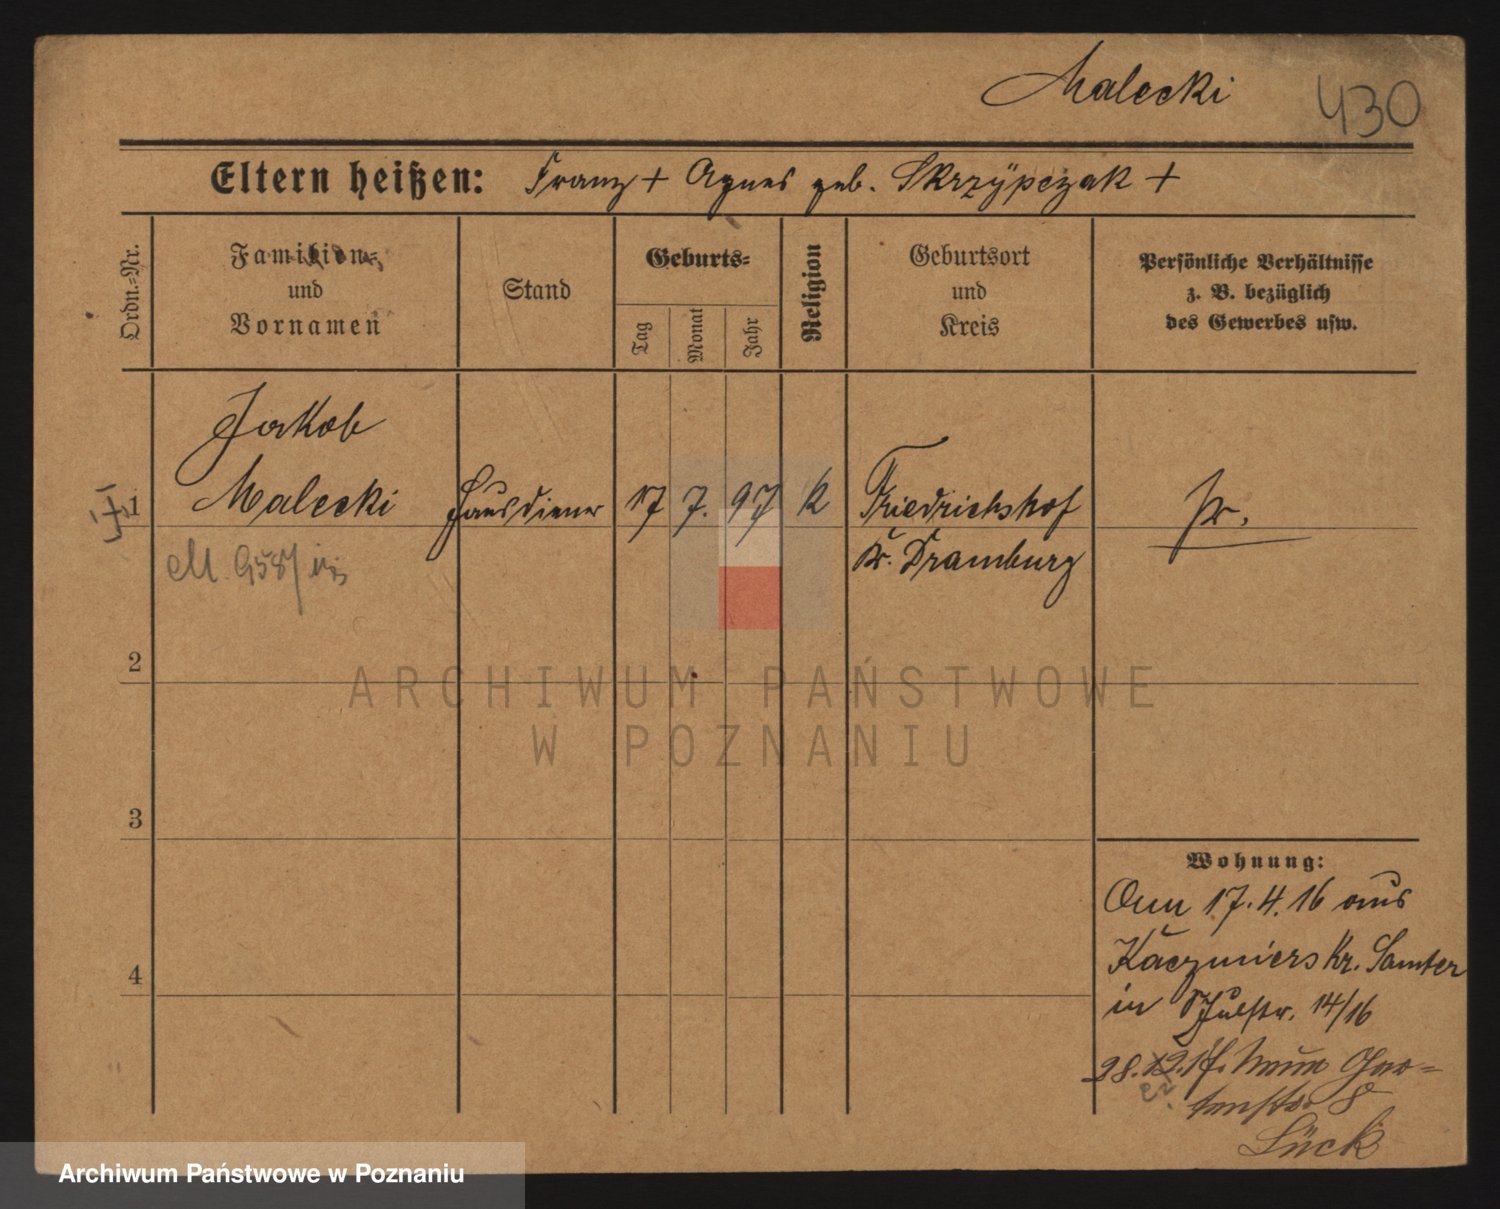 Malecki 430
Eltern heißen: Franz + Agnes geb. Skrzÿpczak +
Ordn.-Nr.
Familien-
und
Vornamen
Stand
Geburts-
Tag
Monat
Jahr
Religion
Geburtsort
und
Kreis
Persönliche Verhältnisse
z. B. bezüglich
des Gewerbes usw.
Jakob
1 Malecki Hausdiener 17 7. 97 k Friedrichshof pr.
Kr. Dramburg
M. 958/
2
3
4
Wohnung:
Am 17.4.16 aus
Kaczmiers Kr. Samter
in 14/16
28.
8
Lück
ARCHIWUM PAŃSTWOWE
W POZNANIU
Archiwum Państwowe w Poznaniu